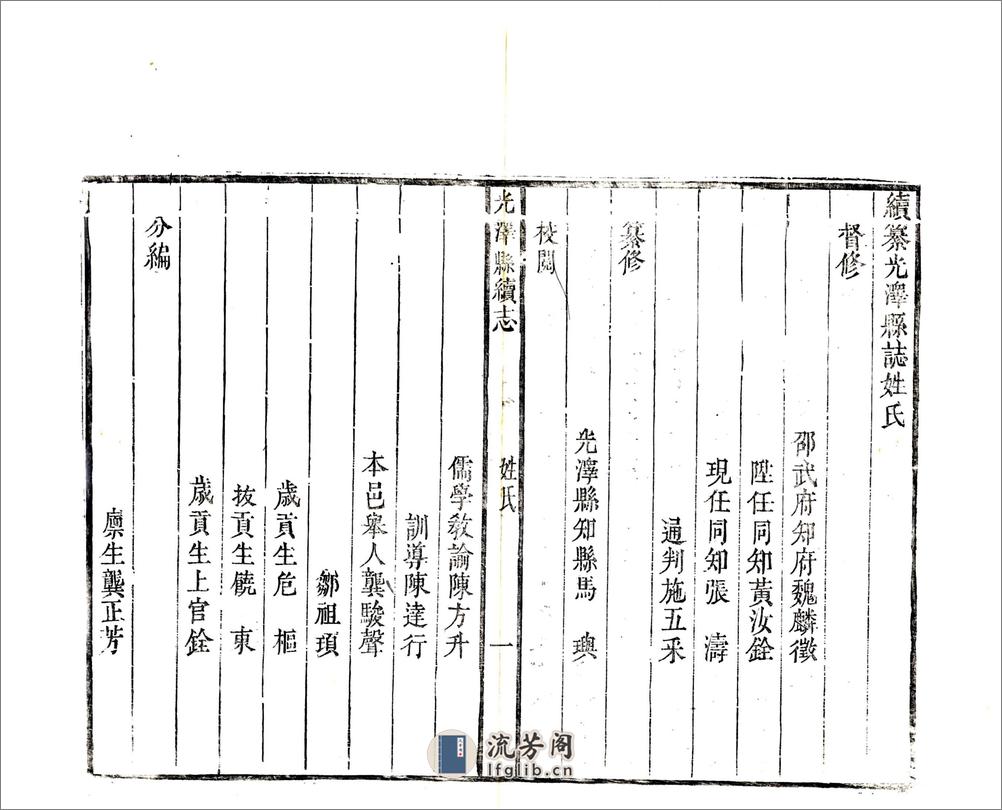 續纂光澤縣誌姓氏
督修
邵武府知府魏麟徵
陞任同知黃汝銓
現任同知張　濤
通判施五釆
纂修
光澤縣知縣馬　璵
校閱
光澤縣續志　姓氏　一
儒學教諭陳方升
訓導陳達行
本邑舉人龔駿聲
鄒祖頊
歲貢生危　樞
拔貢生饒　東
歲貢生上官銓
分編
廪生龔正芳
流芳阁
lfglib.cn